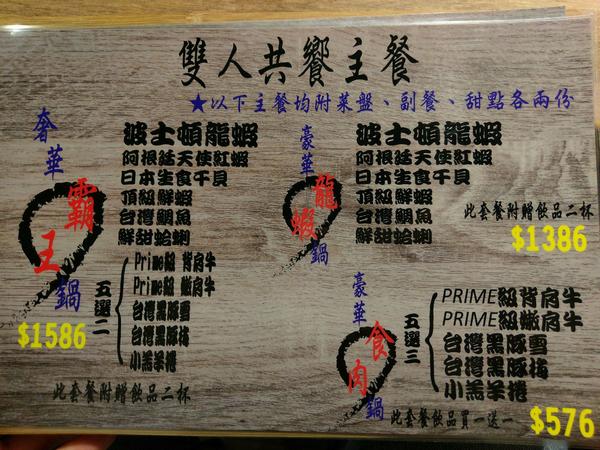 雙人共饗主餐
★以下主餐均附菜盤、副餐、甜點各兩份
奢華霸王鍋
波士頓龍蝦
阿根廷天使紅蝦
日本生食干貝
頂級鮮蝦
台灣鯛魚
鮮甜蛤蜊
五選二
Prime級 背肩牛
Prime級 嫩肩牛
台灣黑豚雪
台灣黑豚梅
小羔羊捲
$1586
此套餐附贈飲品二杯
豪華龍蝦鍋
波士頓龍蝦
阿根廷天使紅蝦
日本生食干貝
頂級鮮蝦
台灣鯛魚
鮮甜蛤蜊
此套餐附贈飲品二杯
$1386
豪華食肉鍋
五選三
PRIME級背肩牛
PRIME級嫩肩牛
台灣黑豚雪
台灣黑豚梅
小羔羊捲
此套餐飲品買一送一
$576